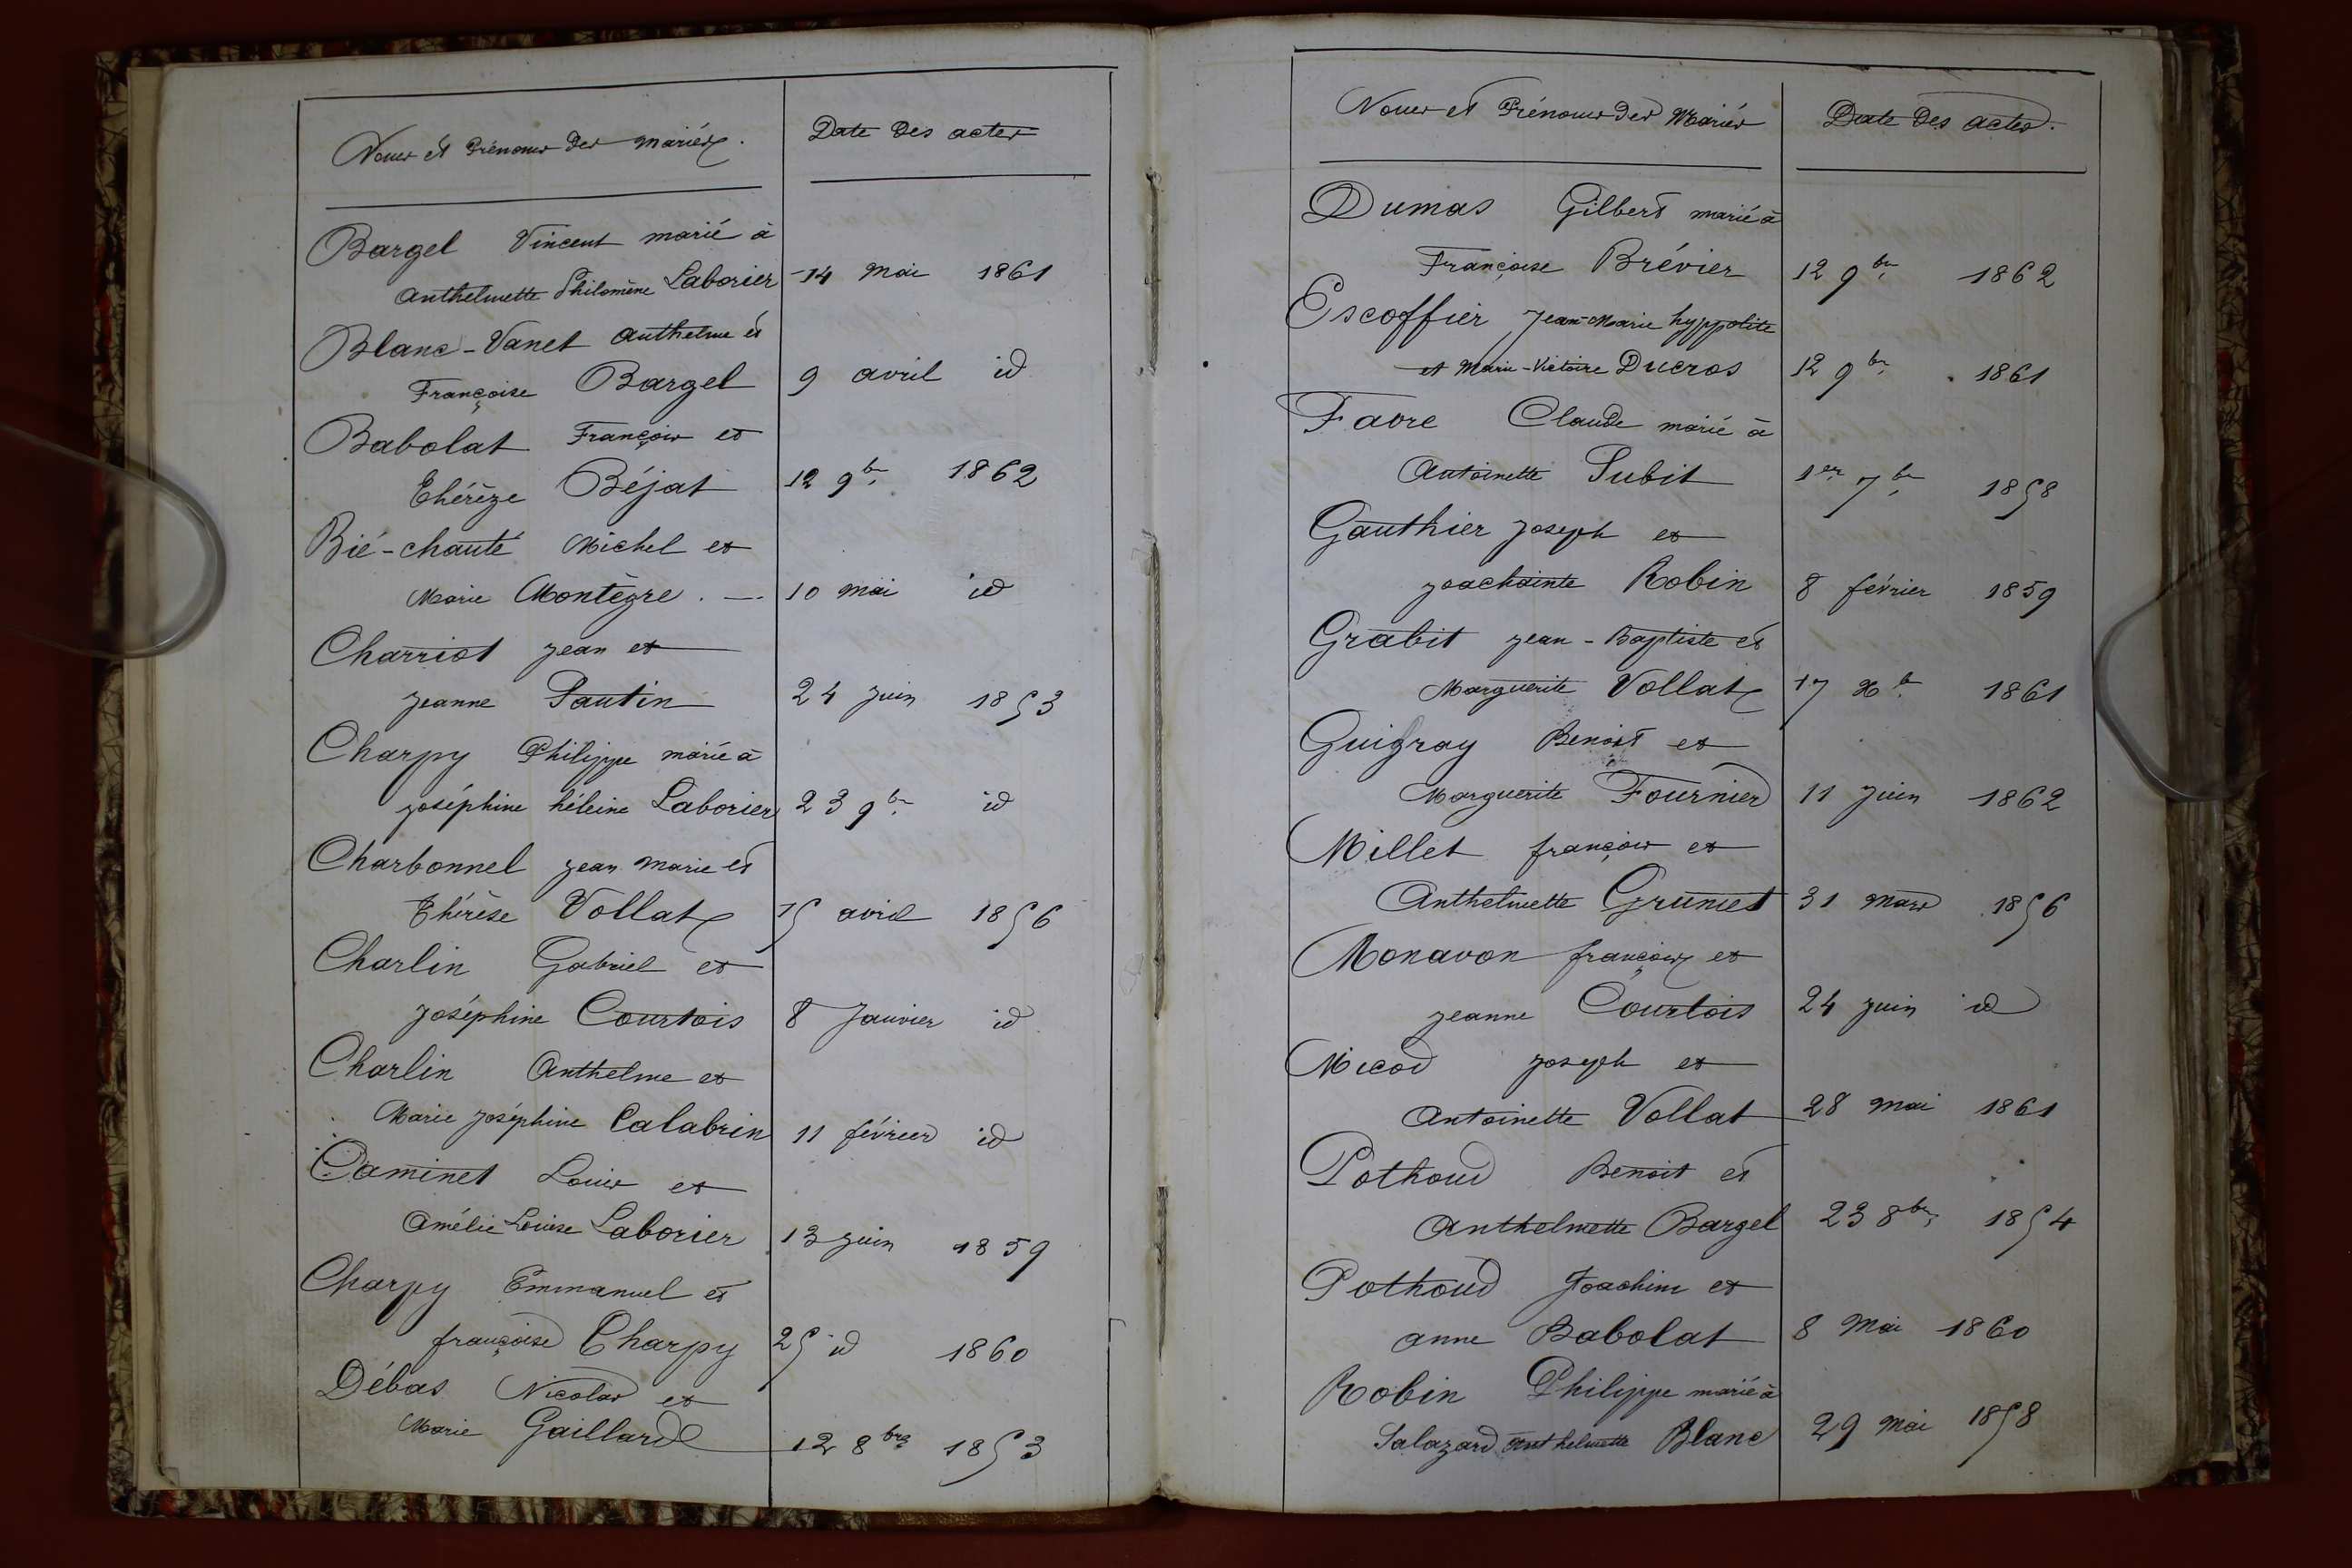 Noms et Prénoms des mariés. Date des actes
Bargel Vincent marié à
Anthelmette Philomène Laborier 14 mai 1861
Blanc-Vanet Anthelme et
Françoise Bargel 9 avril id
Babolat François et
Thérèze Béjat 12 9bre 1862
Bié-chanté Michel et
Marie Montègre . — 10 mai id
Charriot Jean et
Jeanne Pautin 24 juin 1853
Charpy Philippe marié à
Joséphine héleine Laborier 23 9bre id
Charbonnel Jean Marie et
Thérèse Vollat 15 avril 1856
Charlin Gabriel et
Joséphine Courtois 8 Janvier id
Charlin Anthelme et
Marie Joséphine Calabrin 11 février id
Caminet Louis et
Amélie Louise Laborier 13 juin 1859
Charpy Emmanuel et
françoise Charpy 25 id 1860
Débas Nicolas et
Marie Gaillard 12 8bre 1853
Noms et Prénoms des Mariés Date des actes.
Dumas Gilbert marié à
Françoise Brévier 12 9bre 1862
Escoffier Jean-Marie hyppolite
et Marie-Victoire Ducros 12 9bre 1861
Favre Claude marié à
Antoinette Subit 1er 7bre 1858
Gauthier Joseph et
Joachainte Robin 8 février 1859
Grabit Jean-Baptiste et
Marguerite Vollat 17 Xbre 1861
Guigray Benoit et
Marguerite Fournier 11 juin 1862
Millet françois et
Anthelmette Grumet 31 mars 1856
Monavon françois et
Jeanne Courtois 24 juin id
Micod Joseph et
Antoinette Vollat 28 mai 1861
Pothoud Benoit et
Anthelmette Bargel 23 8bre 1854
Pothoud Joachim et
anne Babolat 8 Mai 1860
Robin Philippe marié à
Salazard Anthelmette Blanc 29 mai 1858